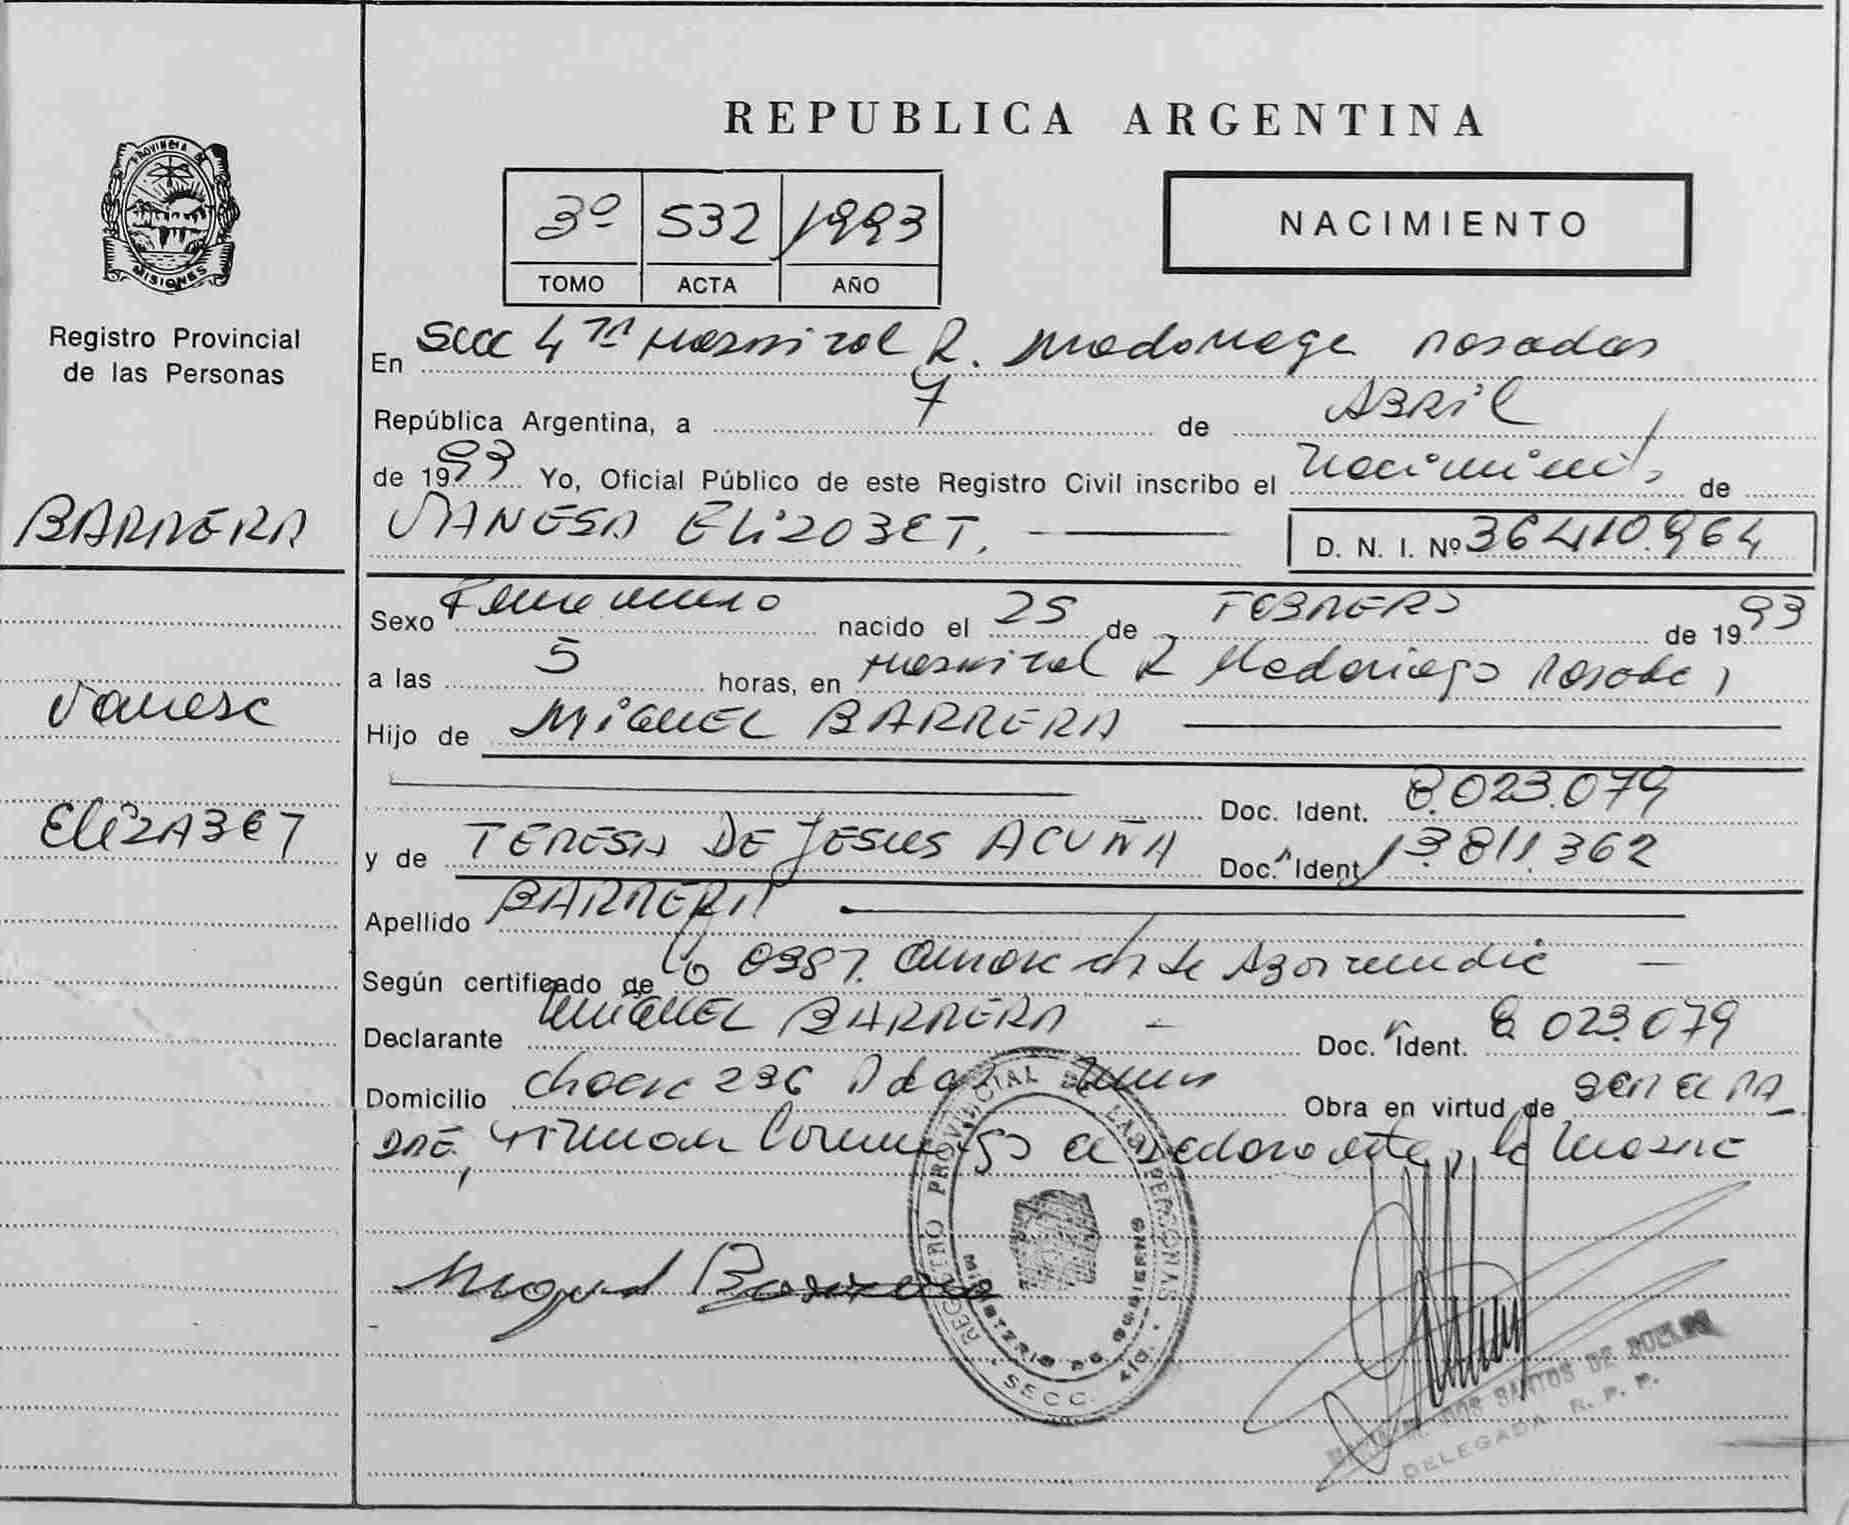 REPUBLICA ARGENTINA
PROVINCIA DE
MISIONES
Registro Provincial
de las Personas
3º 532 1993
TOMO ACTA AÑO
NACIMIENTO
En Secc 4ta Hospital R. Madariaga Posadas
República Argentina, a 7 de Abril
de 1993 Yo, Oficial Público de este Registro Civil inscribo el Nacimiento de
BARRERA
VANESA ELIZABET. D. N. I. Nº 36410.964
Sexo Femenino nacido el 25 de FEBRERO de 1993
a las 5 horas, en Hospital R Madariaga Posadas
Vanesa
Hijo de MIGUEL BARRERA
Doc. Ident. 8.023.079
ELIZABET
y de TERESA DE JESUS ACUÑA Doc. Ident. 13.811.362
Apellido BARRERA
Según certificado de
Declarante MIGUEL BARRERA Doc. Ident. 8.023.079
Domicilio 236 Obra en virtud de ser el PA
DRE, Firman Conmigo el Declarante y la Madre
Miguel Barrera
REGISTRO PROVINCIAL DE LAS PERSONAS
MINISTERIO DE GOBIERNO
SECC. 4ta.
DOS SANTOS DE
DELEGADA R. P. P.